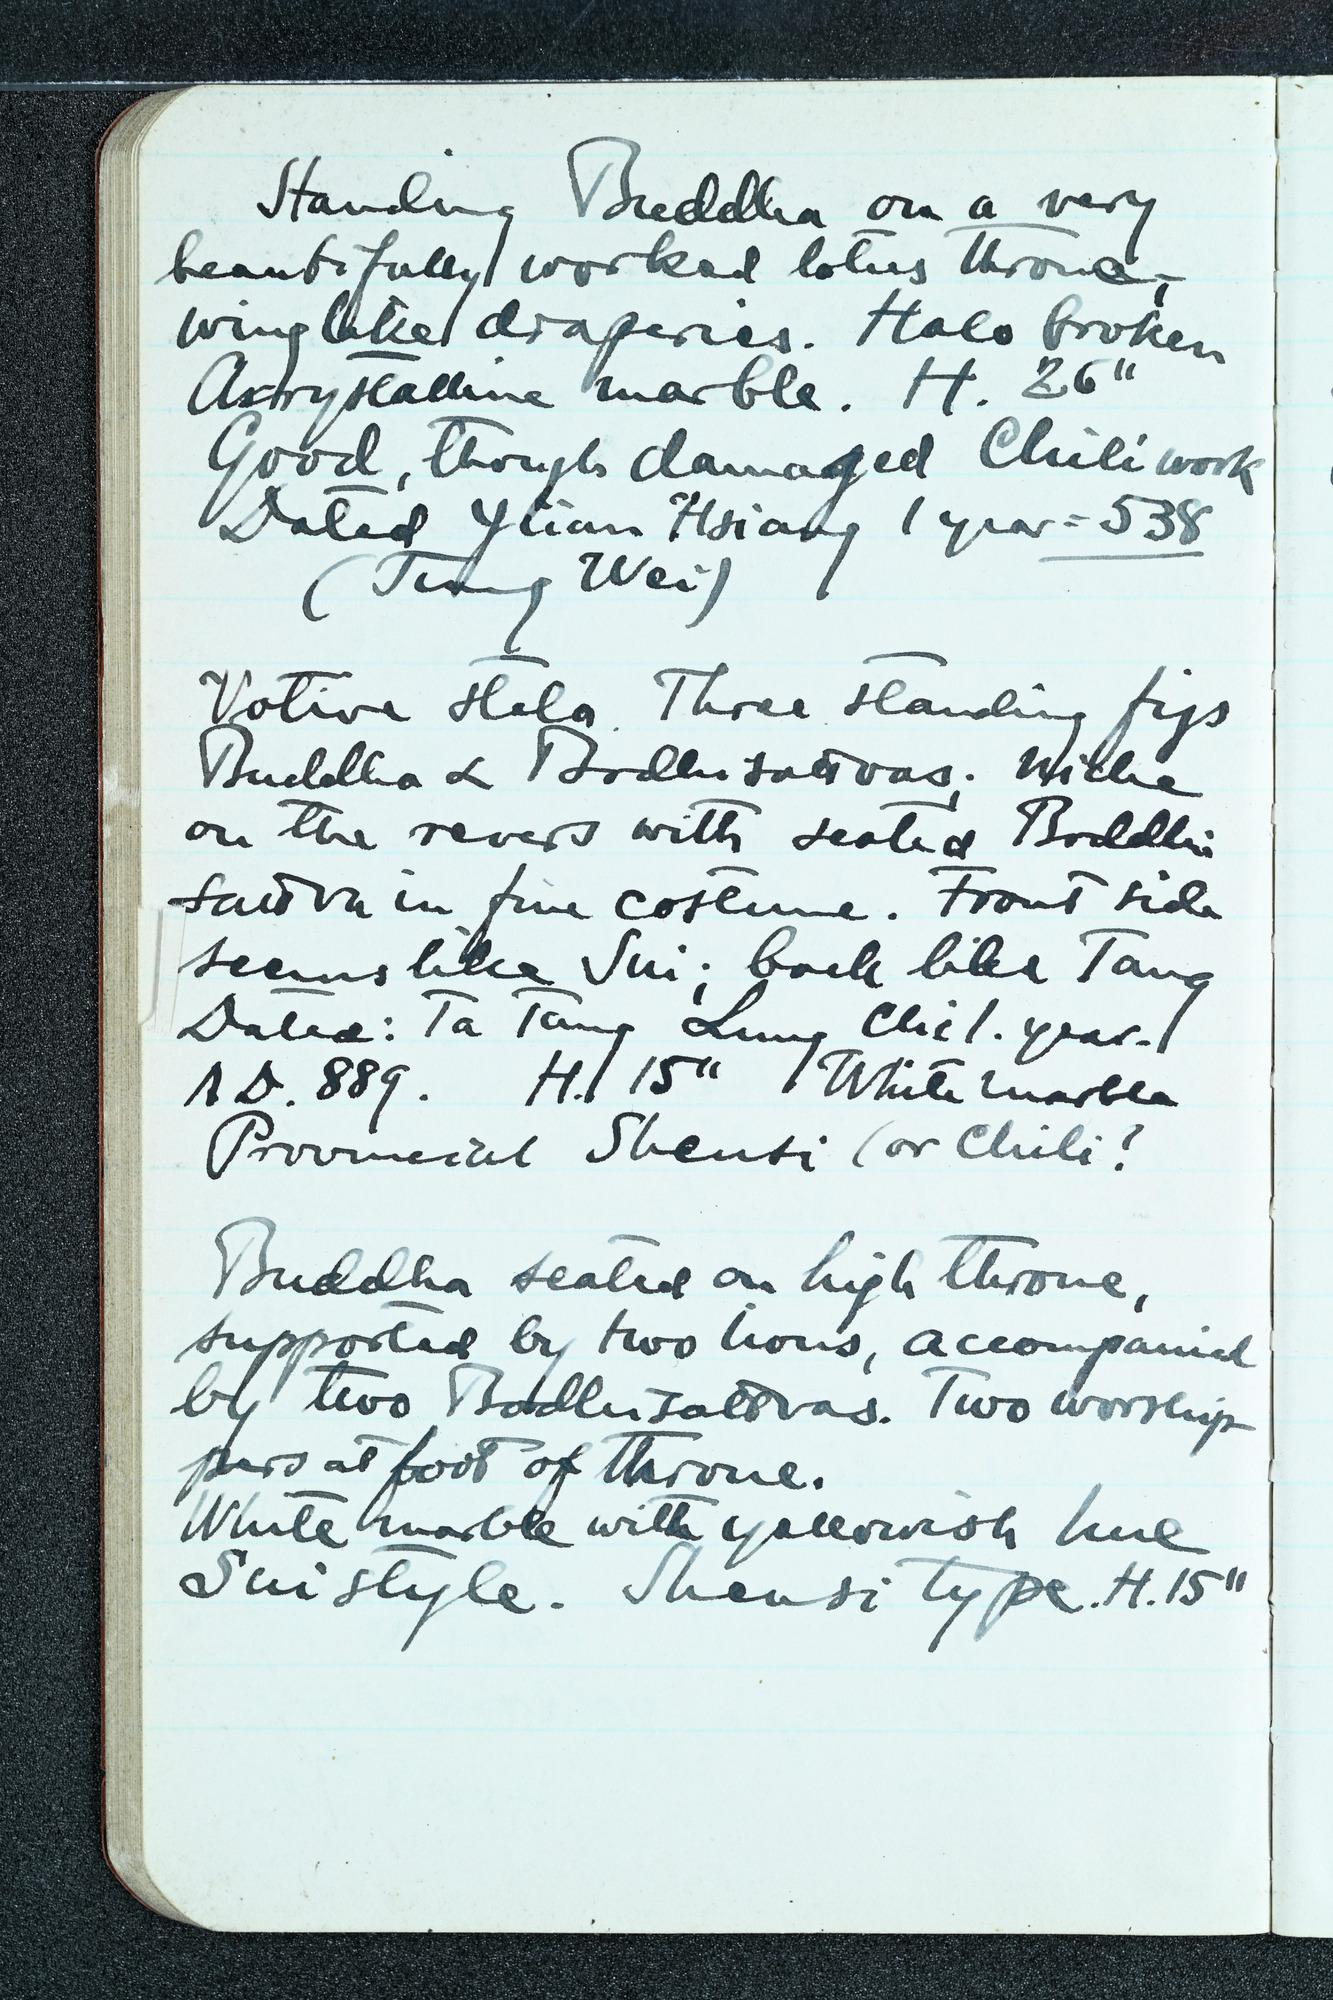 Standing Buddha on a very
beautifully worked lotus throne;
winglike draperies. Halo broken
marble. H. 26"
Good, though damaged Chili work
Dated Yüan Hsiang 1 year = 538
(Tung Wei)
Votive stela. Three standing figs
Buddha & Bodhisattvas; Niche
on the revers with seated Boddhi
sattva in fine costume. Front side
seems like Sui; back like Tang
Dated: Ta Tang Lung Chi 1. year.
A D. 889. H. 15" White marble
Provincial Shensi (or Chili?
Buddha seated on high throne,
supported by two lions, accompanied
by two Bodhisattvas. Two worship-
pers at foot of throne.
White marble with yellowish hue
Sui style. Shensi type. H. 15"